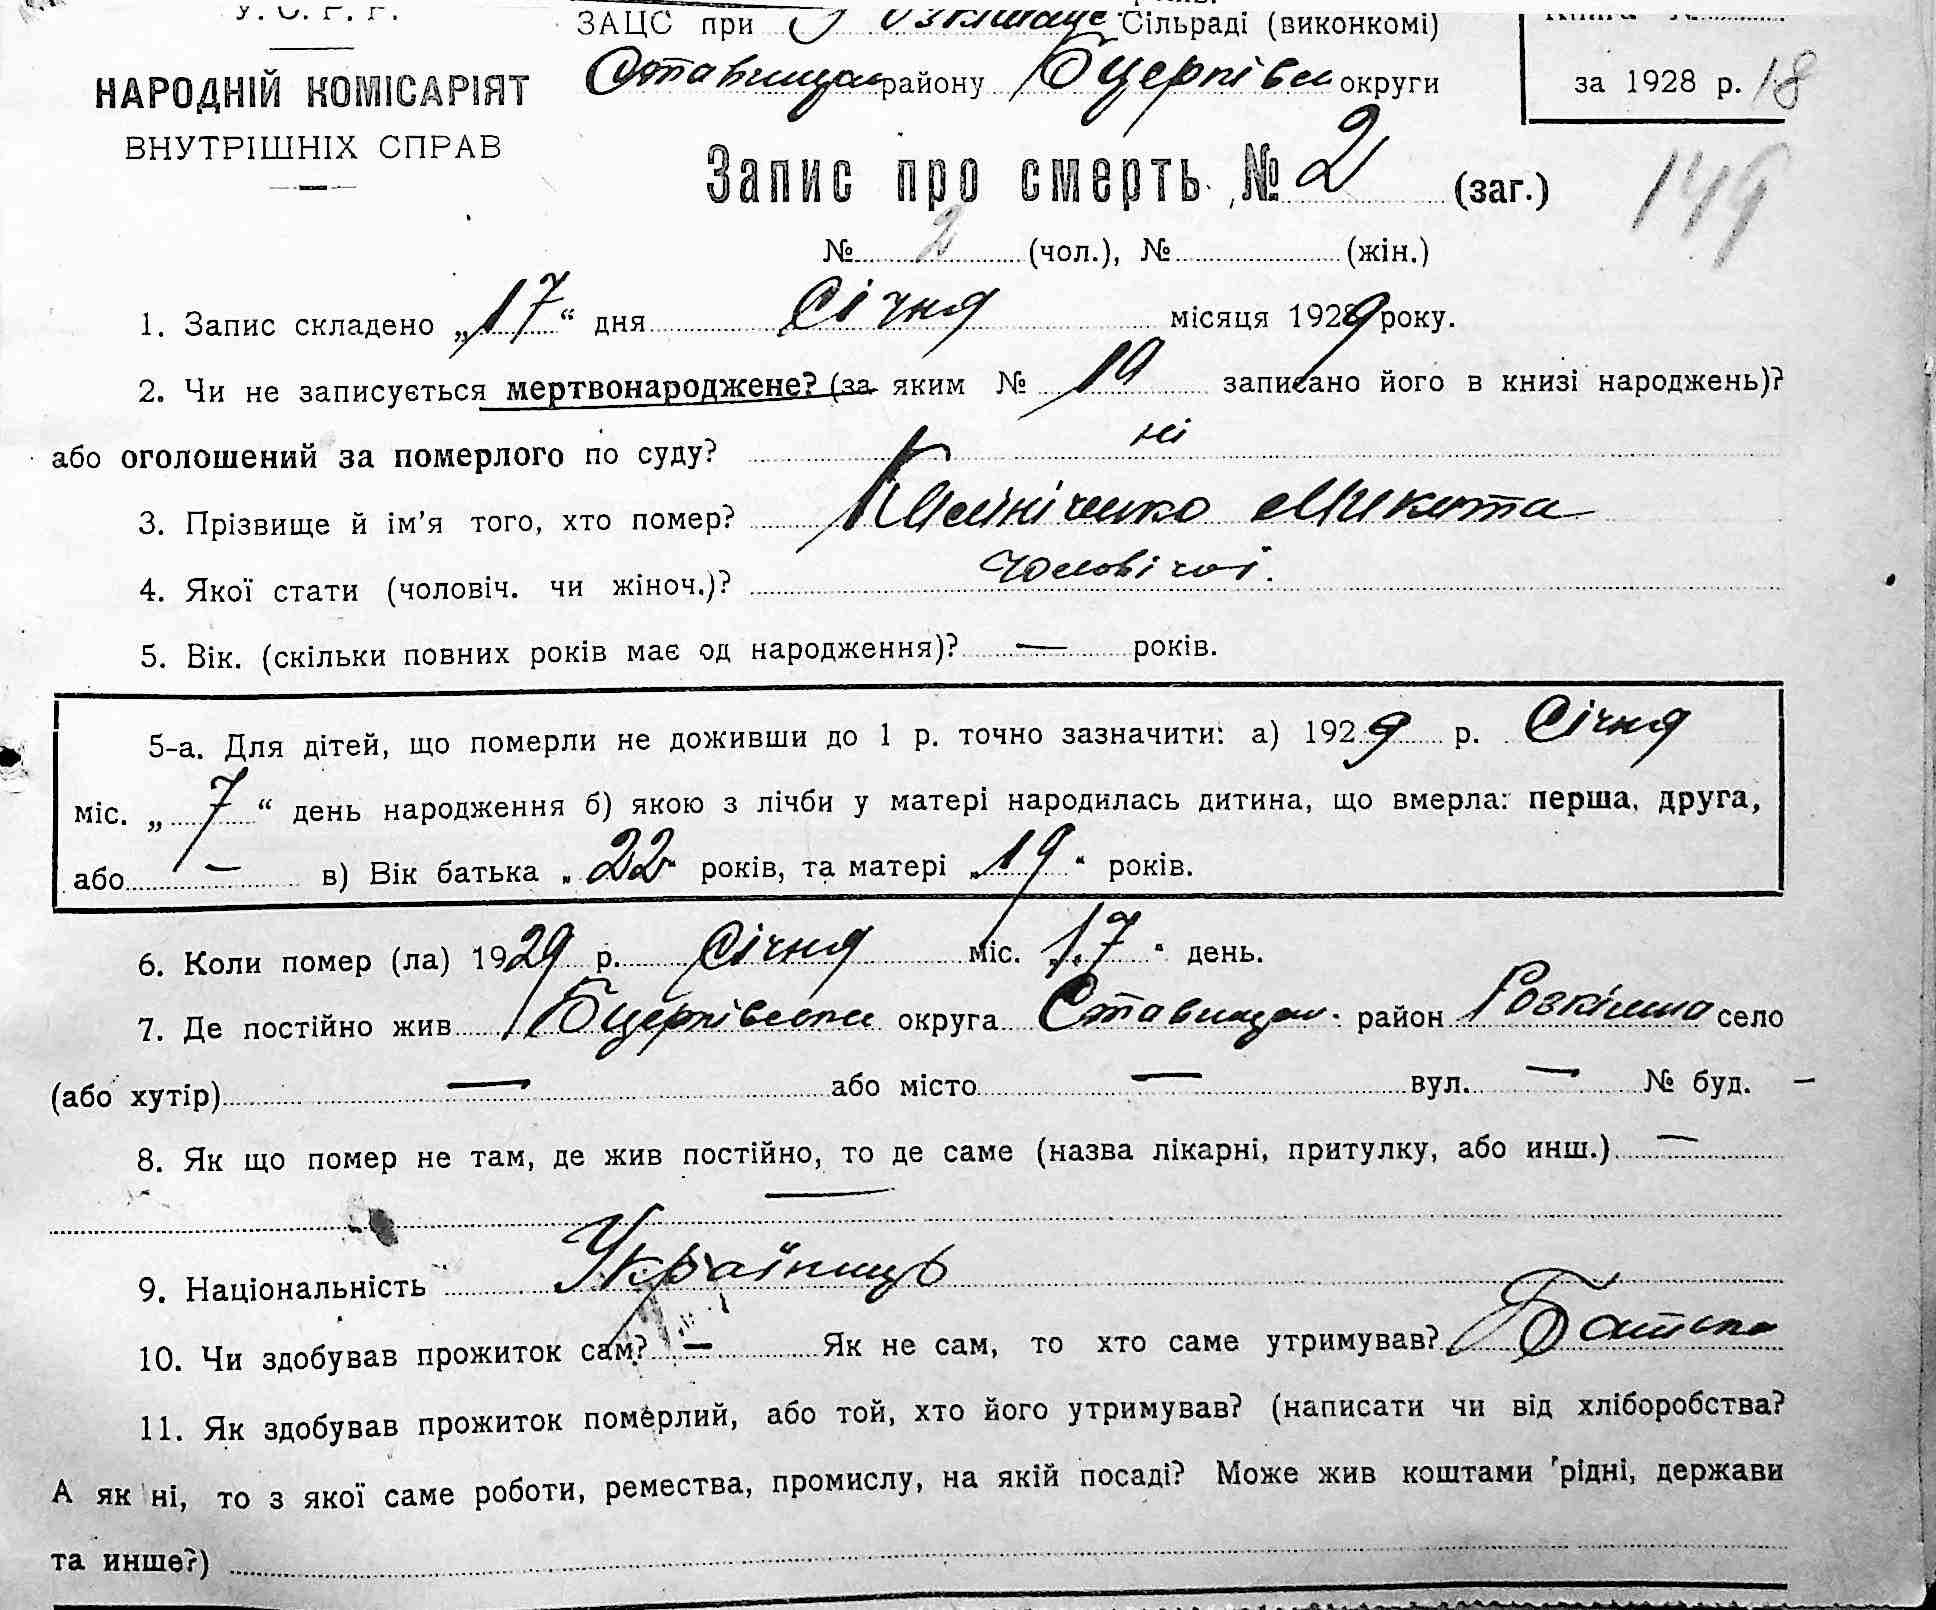 У. С. Р. Р.
НАРОДНІЙ КОМІСАРІЯТ
ВНУТРІШНІХ СПРАВ
ЗАЦС при Сільраді (виконкомі)
Ставищан району Бцерківськ округи
за 1928 р. 18
149
Запис про смерть № 2 (заг.)
№ 2 (чол.), № (жін.)
1. Запис складено „17“ дня Січня місяця 1929 року.
2. Чи не записується мертвонароджене? (за яким № 19 записано його в книзі народжень)?
або оголошений за померлого по суду? ні
3. Прізвище й ім'я того, хто помер? Микита
4. Якої стати (чоловіч. чи жіноч.)? Чоловічої.
5. Вік. (скільки повних років має од народження)? — років.
5-а. Для дітей, що померли не доживши до 1 р. точно зазначити: а) 1929 р. Січня
міс. „7“ день народження б) якою з лічби у матері народилась дитина, що вмерла: перша, друга,
або — в) Вік батька „22“ років, та матері „19“ років.
6. Коли помер (ла) 1929 р. Січня міс. „17“ день.
7. Де постійно жив Бцерківськ округа Ставищан. район Розкішна село
(або хутір) — або місто — вул. — № буд. —
8. Як що помер не там, де жив постійно, то де саме (назва лікарні, притулку, або инш.) —
—
9. Національність Українець
10. Чи здобував прожиток сам? — Як не сам, то хто саме утримував? Батько
11. Як здобував прожиток померлий, або той, хто його утримував? (написати чи від хліборобства?
А як ні, то з якої саме роботи, ремества, промислу, на якій посаді? Може жив коштами рідні, держави
та инше?)